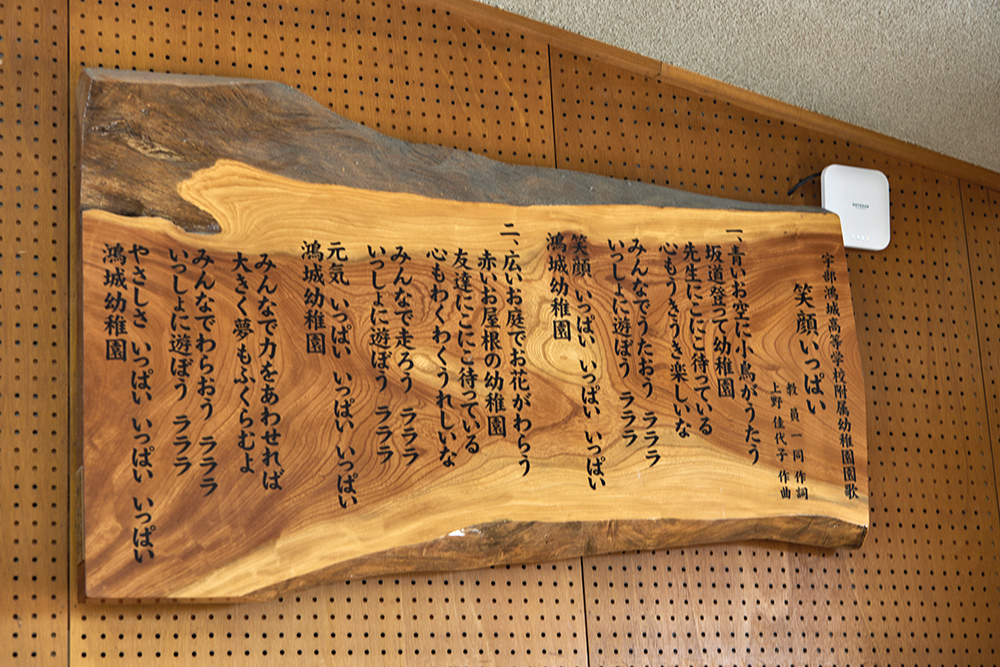 宇部鴻城高等学校附属幼稚園園歌
笑顔いっぱい
教員一同 作詞
上野 佳代子 作曲
一、青いお空に小鳥がうたう
坂道登って幼稚園
先生にこにこ待っている
心もうきうき楽しいな
みんなでうたおう ラララ
いっしょに遊ぼう ラララ
笑顔 いっぱい いっぱい いっぱい
鴻城幼稚園
二、広いお庭でお花がわらう
赤いお屋根の幼稚園
友達にこにこ待っている
心もわくわくうれしいな
みんなで走ろう ラララ
いっしょに遊ぼう ラララ
元気 いっぱい いっぱい いっぱい
鴻城幼稚園
みんなで力をあわせれば
大きく夢もふくらむよ
みんなでわらおう ラララ
いっしょに遊ぼう ラララ
やさしさ いっぱい いっぱい いっぱい
鴻城幼稚園
NETGEAR